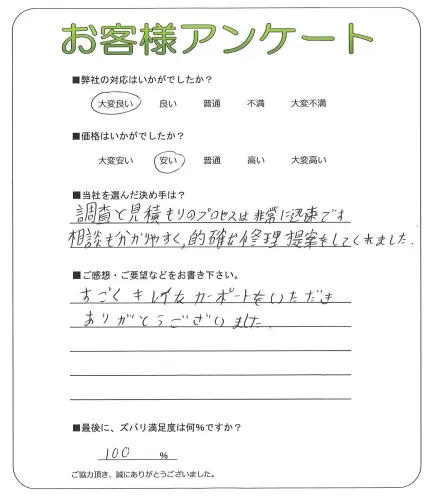 お客様アンケート
■弊社の対応はいかがでしたか？
大変良い 良い 普通 不満 大変不満
■価格はいかがでしたか？
大変安い 安い 普通 高い 大変高い
■当社を選んだ決め手は？
調査と見積もりのプロセスは非常に迅速です
相談も分かりやすく,的確な修理提案をしてくれました.
■ご感想・ご要望などをお書き下さい。
すごくキレイなカーポートをいただき
ありがとうございました.
■最後に、ズバリ満足度は何%ですか？
100 %
ご協力頂き、誠にありがとうございました。